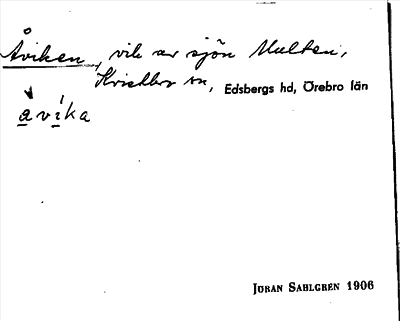 Åviken, vik av sjön Multen,
Knista sn, Edsbergs hd, Örebro län
åvika
JÖRAN SAHLGREN 1906